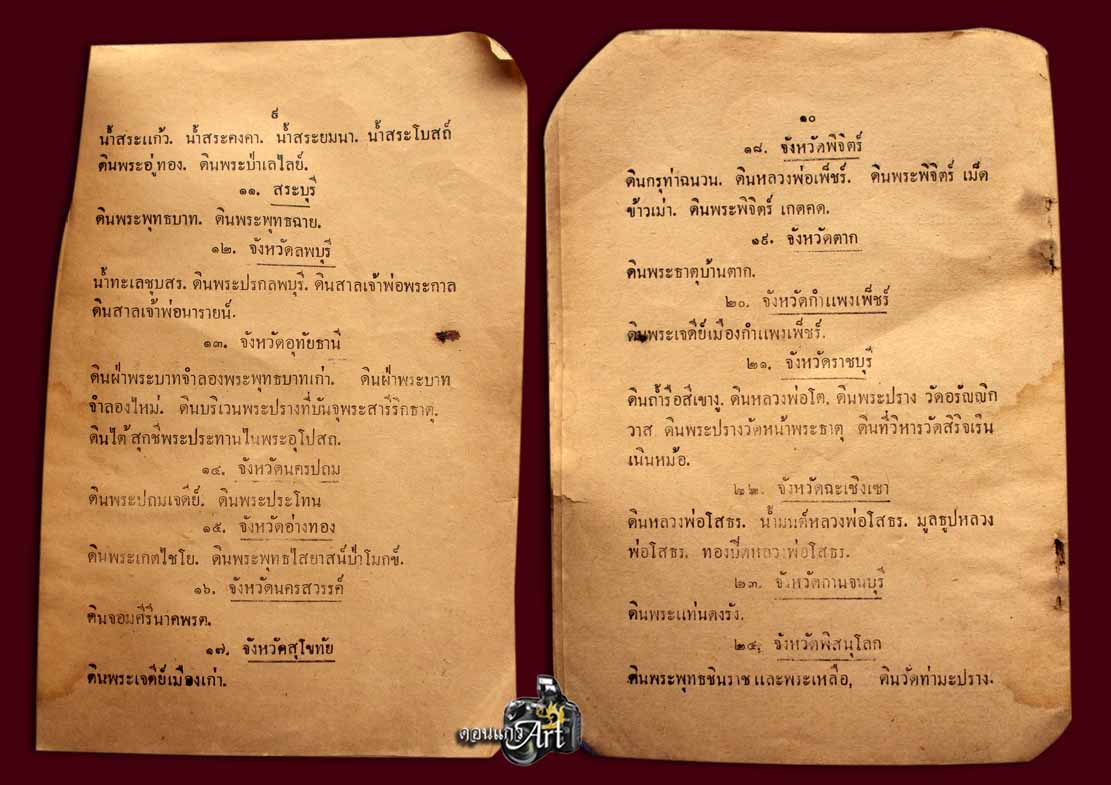 ๙
น้ำสระแก้ว. น้ำสระคงคา. น้ำสระยมนา. น้ำสระโบสถ์
ดินพระอู่ทอง. ดินพระป่าเลไลย์.
๑๑. สระบุรี
ดินพระพุทธบาท. ดินพระพุทธฉาย.
๑๒. จังหวัดลพบุรี
น้ำทะเลชุบสร. ดินพระปรกลพบุรี. ดินสาลเจ้าพ่อพระกาล
ดินสาลเจ้าพ่อนารายน์.
๑๓. จังหวัดอุทัยธานี
ดินฝ่าพระบาทจำลองพระพุทธบาทเก่า. ดินฝ่าพระบาท
จำลองใหม่. ดินบริเวนพระปรางที่บันจุพระสารีริกธาตุ.
ดินใต้สุกชีพระประทานในพระอุโปสถ.
๑๔. จังหวัดนครปถม
ดินพระปถมเจดีย์. ดินพระประโทน
๑๕. จังหวัดอ่างทอง
ดินพระเกตไชโย. ดินพระพุทธไสยาสน์ป่าโมกข์.
๑๖. จังหวัดนครสวรรค์
ดินจอมคีรีนาคพรต.
๑๗. จังหวัดสุโขทัย
ดินพระเจดีย์เมืองเก่า.
๑๐
๑๘. จังหวัดพิจิตร์
ดินกรุท่าฉนวน. ดินหลวงพ่อเพ็ชร์. ดินพระพิจิตร์ เม็ด
ข้าวเม่า. ดินพระพิจิตร์ เกตคด.
๑๙. จังหวัดตาก
ดินพระธาตุบ้านตาก.
๒๐. จังหวัดกำแพงเพ็ชร์
ดินพระเจดีย์เมืองกำแพงเพ็ชร์.
๒๑. จังหวัดราชบุรี
ดินถ้ำรือสีเขางู. ดินหลวงพ่อโต. ดินพระปราง วัดอรัญญิก
วาส ดินพระปรางวัดหน้าพระธาตุ ดินที่วิหารวัดสิริจเริน
เนินหม้อ.
๒๒. จังหวัดฉะเชิงเซา
ดินหลวงพ่อโสธร. น้ำมนต์หลวงพ่อโสธร. มูลธูปหลวง
พ่อโสธร. ทองปิดหลวงพ่อโสธร.
๒๓. จังหวัดกานจนบุรี
ดินพระแท่นดงรัง.
๒๔. จังหวัดพิสนุโลก
ดินพระพุทธชินราช และพระเหลือ, ดินวัดท่ามะปราง.
ดอนแก้ว Art